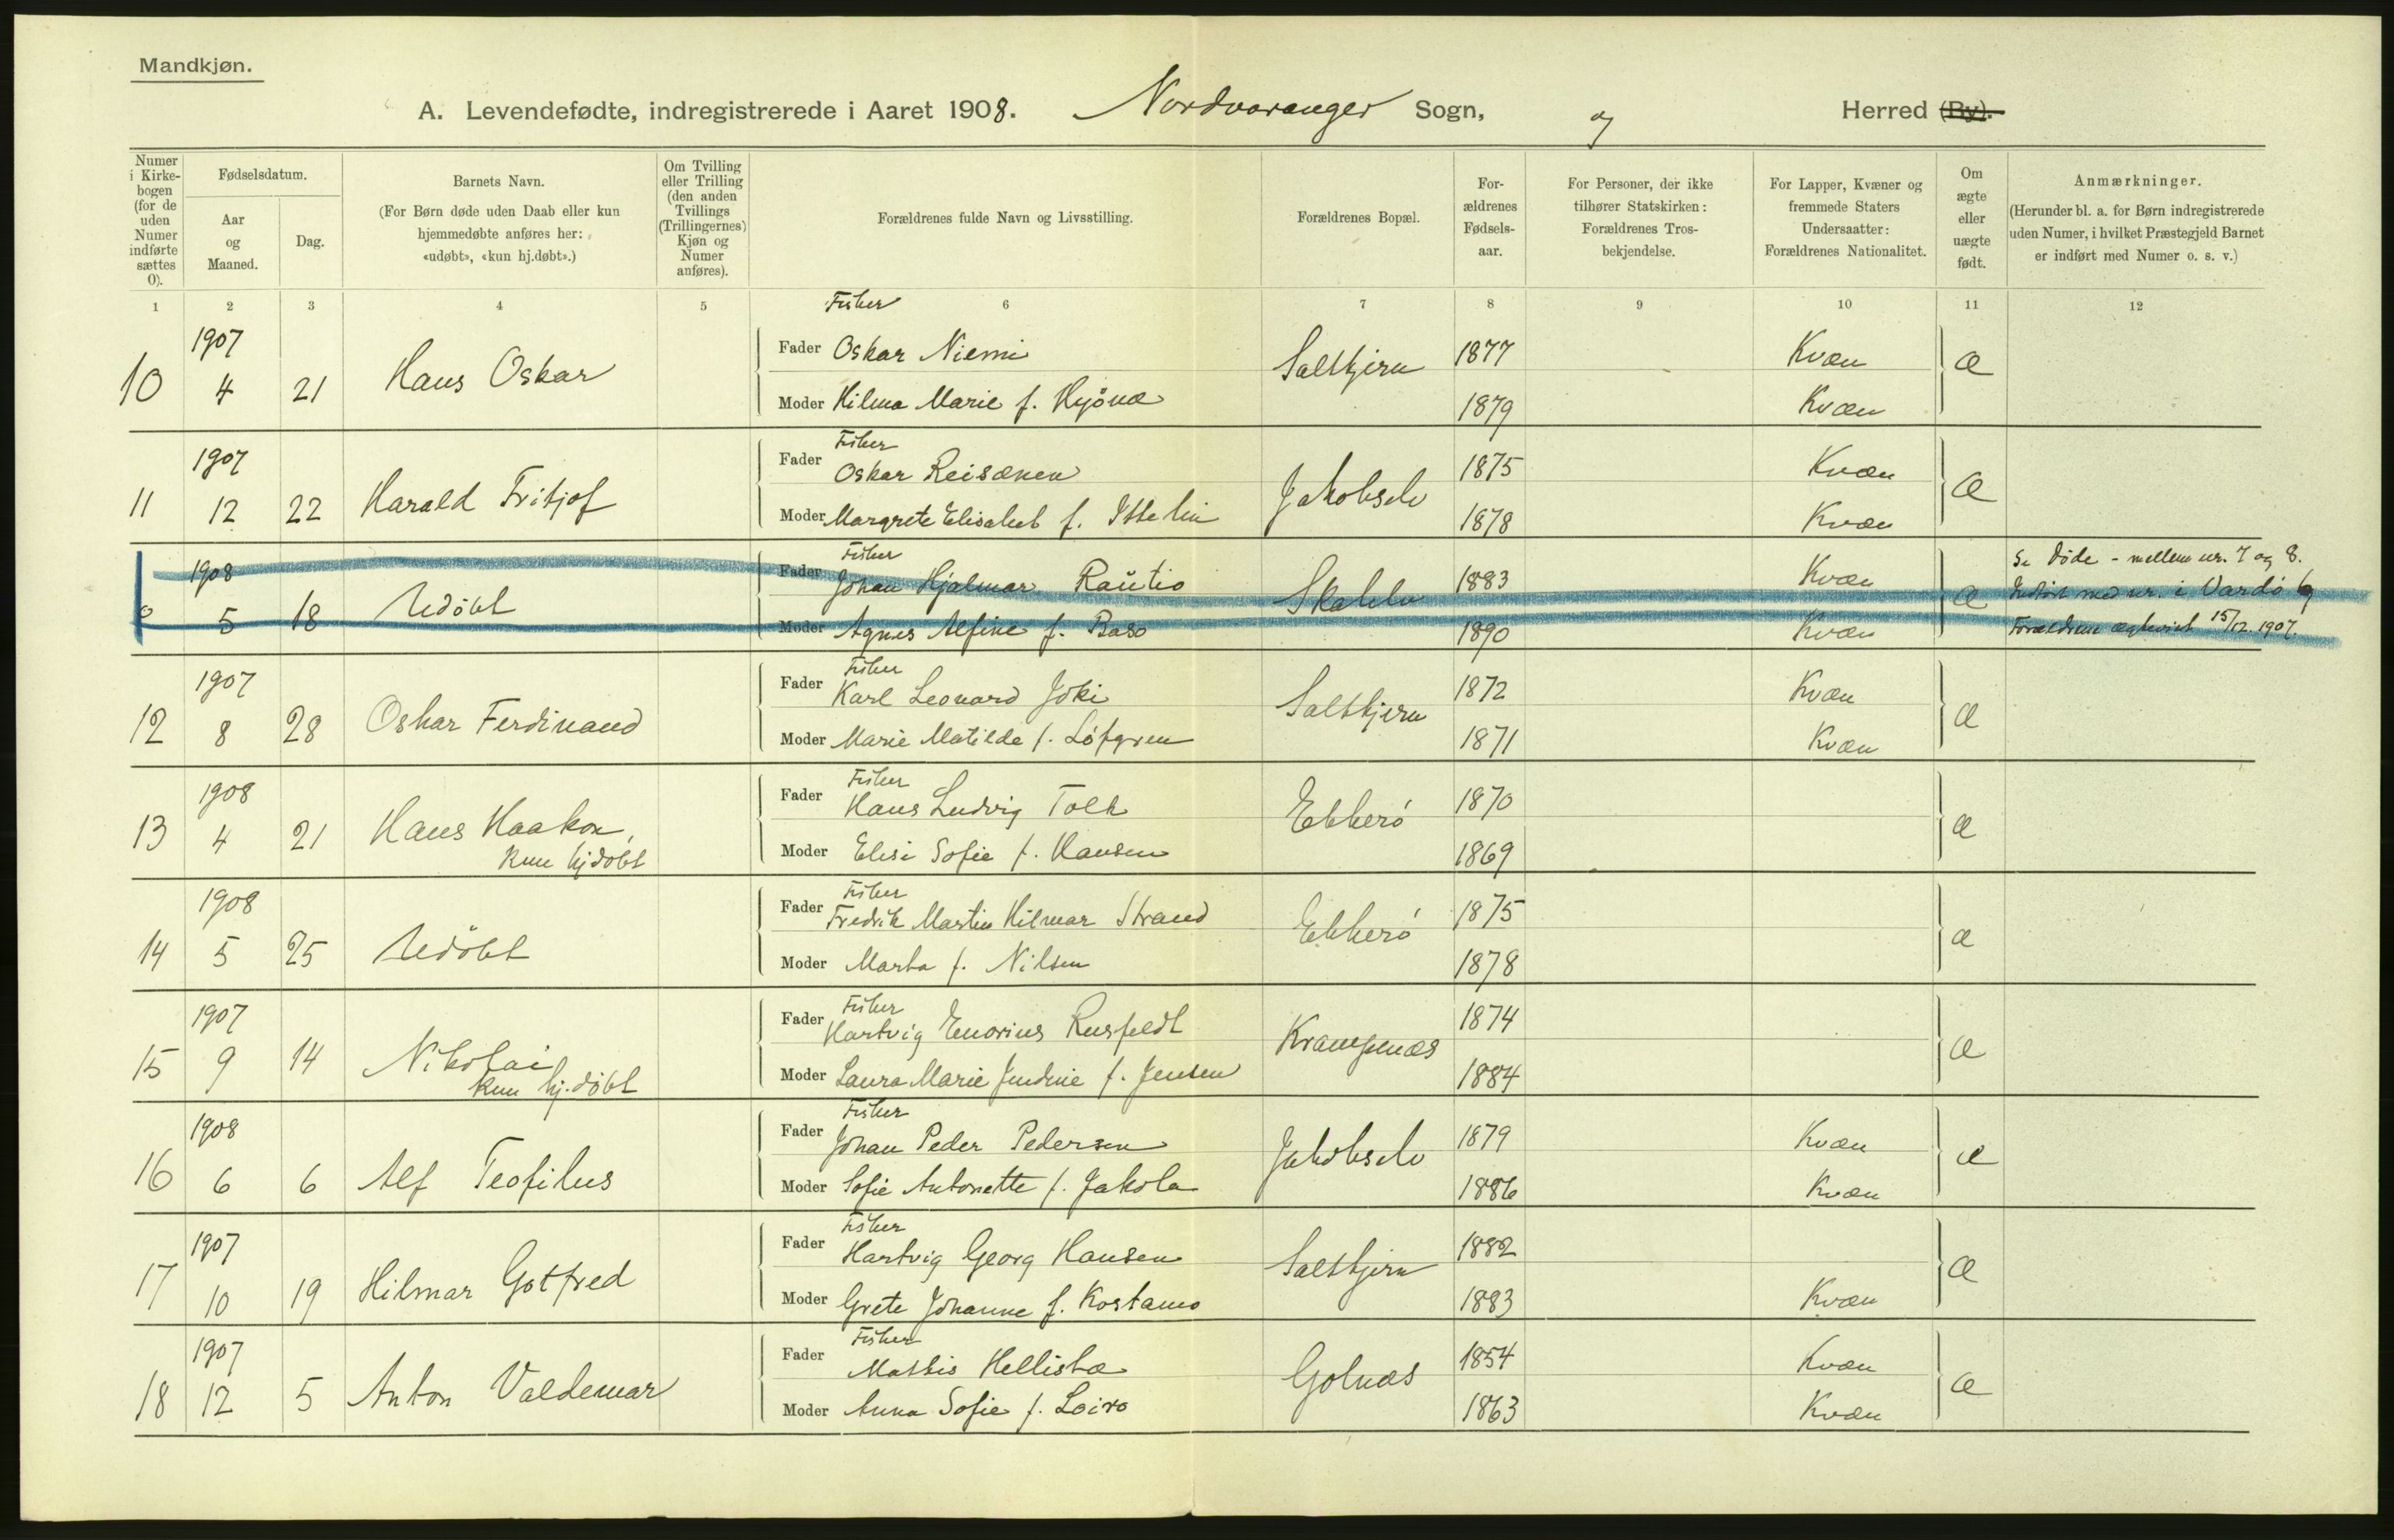 Mandkjøn.
A. Levendefødte, indregistrerede i Aaret 1908. Nordvaranger Sogn, og Herred (By).
Numer i Kirkebogen (for de uden Numer indførte sættes 0).
Fødselsdatum.
Aar og Maaned.
Dag.
Barnets Navn.
(For Børn døde uden Daab eller kun hjemmedøbte anføres her: «udøbt», «kun hj.døbt».)
Om Tvilling eller Trilling (den anden Tvillings (Trillingernes) Kjøn og Numer anføres).
Forældrenes fulde Navn og Livsstilling.
Forældrenes Bopæl.
Forældrenes Fødselsaar.
For Personer, der ikke tilhører Statskirken: Forældrenes Trosbekjendelse.
For Lapper, Kvæner og fremmede Staters Undersaatter: Forældrenes Nationalitet.
Om ægte eller uægte født.
Anmærkninger.
(Herunder bl. a. for Børn indregistrerede uden Numer, i hvilket Præstegjeld Barnet er indført med Numer o. s. v.)
1 2 3 4 5 6 7 8 9 10 11 12
10 1907 4 21 Hans Oskar
Fisker
Fader Oskar Niemi Saltkjern 1877 Kvæn æ
Moder Hilma Marie f. Hyönæ 1879 Kvæn
11 1907 12 22 Harald Fritjof
Fisker
Fader Oskar Reisænen Jakobselv 1875 Kvæn æ
Moder Margrete Elisabet f. 1878 Kvæn
0 1908 5 18 Udöbt
Fisker
Fader Johan Hjalmar Rautio Skalelv 1883 Kvæn æ
Moder Agnes Alfine f. Baso 1890 Kvæn
Se døde - mellem nr. 7 og 8.
Indført med nr. i Vardö lg
Forældrene ægteviet 15/12. 1907.
12 1907 8 28 Oskar Ferdinand
Fisker
Fader Karl Leonard Joki Saltkjern 1872 Kvæn æ
Moder Marie Matilde f. Löfgren 1871 Kvæn
13 1908 4 21 Hans Haakon, kun hjdøbt
Fisker
Fader Hans Ludvig Tolk Ekkerö 1870 æ
Moder Elisi Sofie f. Hansen 1869
14 1908 5 25 Udöbt
Fisker
Fader Fredrik Martin Hilmar Strand Ekkerö 1875 æ
Moder Marta f. Nilsen 1878
15 1907 9 14 Nikolai kun hj.döbt
Fisker
Fader Hartvig Enorius Rusfeldt Krampenæs 1874 æ
Moder Laura Marie Jendine f. Jensen 1884
16 1908 6 6 Alf Teofilus
Fisker
Fader Johan Peder Pedersen Jakobselv 1879 Kvæn æ
Moder Sofie Antonette f. Jakola 1886 Kvæn
17 1907 10 19 Hilmar Gotfred
Fisker
Fader Hartvig Georg Hansen Saltkjern 1882 æ
Moder Grete Johanne f. Kostamo 1883 Kvæn
18 1907 12 5 Anton Valdemar
Fisker
Fader Mattis Hellistæ Golnæs 1854 Kvæn æ
Moder Anna Sofie f. Loivo 1863 Kvæn